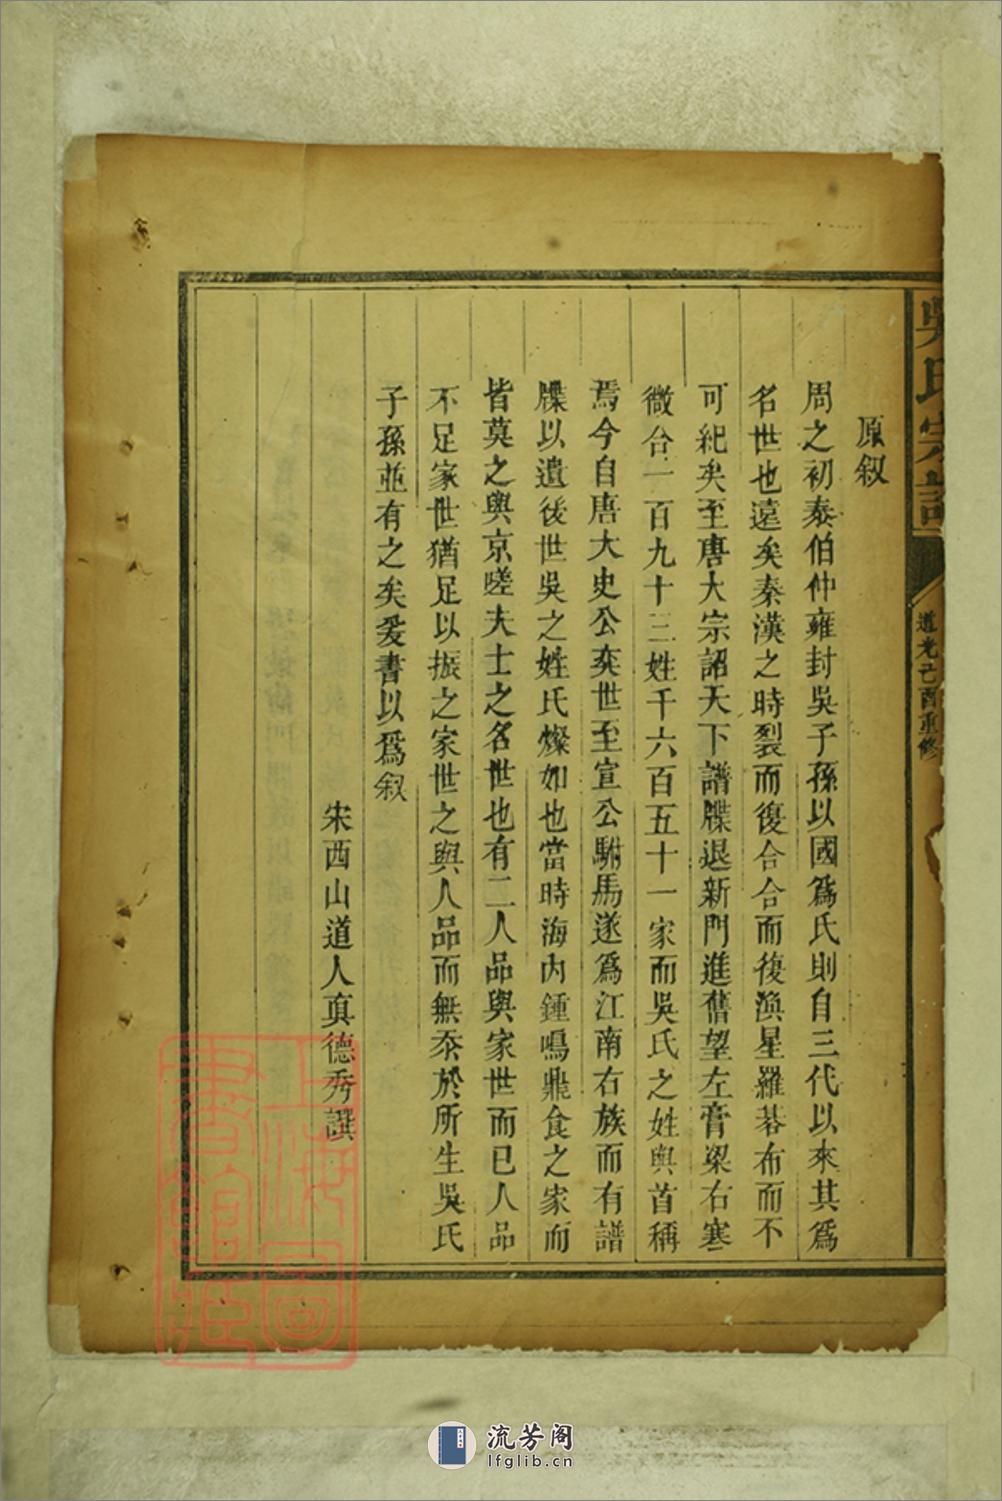 吳氏宗譜
道光己酉重修
原叙
周之初泰伯仲雍封吳子孫以國爲氏則自三代以來其爲
名世也遠矣秦漢之時裂而復合合而復渙星羅碁布而不
可紀矣至唐大宗詔天下譜牒退新門進舊望左膏梁右寒
微合一百九十三姓千六百五十一家而吳氏之姓與首稱
焉今自唐大史公奕世至宣公駙馬遂爲江南右族而有譜
牒以遺後世吳之姓氏燦如也當時海内鍾鳴鼎食之家而
皆莫之與京嗟夫士之名世也有二人品與家世而已人品
不足家世猶足以振之家世之與人品而無忝於所生吳氏
子孫並有之矣爰書以爲叙
宋西山道人眞德秀譔
上海圖書館藏
流芳阁
lfglib.cn